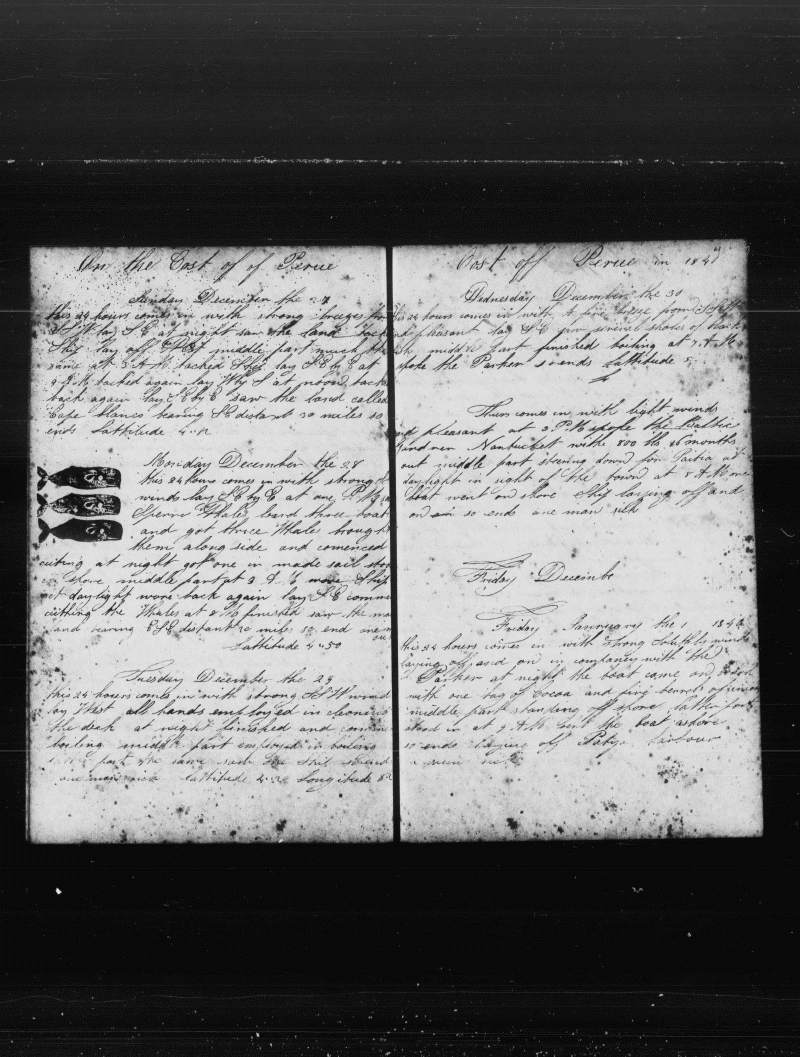 On the Cost of of Perue
Sunday December the 27
this 24 hours comes in with strong breezes from
SSW lay SE at night saw the land tack
Ship lay off middle part much the
same at 3 A M tacked Ship lay S E by E at
tacked again lay W by S at noon tack
back again lay SE by E saw the land called
Cape blanco bearing SE distant 30 miles so
ends Lattitude 4..12
Monday December the 28
this 24 hours comes in with strong
winds lay SE by E at one P M
Sperm Whales loard three boat
and got three Whales brought
them along side and comenced
cutting at night got one in made sail
shore middle part at 3 A Ship
at daylight wore back again lay S E comm
cutting the Whales at finished saw the
land bearing ESE distant 20 miles so end one
Lattitude 4..50
Tuesday December the 29
this 24 hours comes in with strong SSW wind
lay West all hands employed in cleaning
the deck at night finished and comm
boiling middle part employed in boiling
part the same saw one Ship so end
one man sick lattitude 4..32 Longitude 82
Cost off Perue in 184
Wednesday December the 30
this 24 hours comes in with a fine breze from SSW
and pleasant lay SE saw several sholes of black
fish middle part finished boiling at 7 A M
spoke the Parker so ends Lattitude 5
Thurs comes in with light winds
and pleasant at 3 P M spoke the Baltic
Nantucket withe 800 bls 26 months
out middle part steering down for Paitia at
daylight in sight of the town at 8 A M one
boat went on shore Ship laying off and
on so ends one man sick
Friday Decembe
Friday Januuary the 1 184
this 24 hours comes in with strong winds
laying off and on in company with the
Parker at night the boat came on board
with one bag of Cocoa and five barrels of
middle part standing off shore latter part
stood in at 3 A M sent the boat ashore
so ends laying off harbour
a man sick